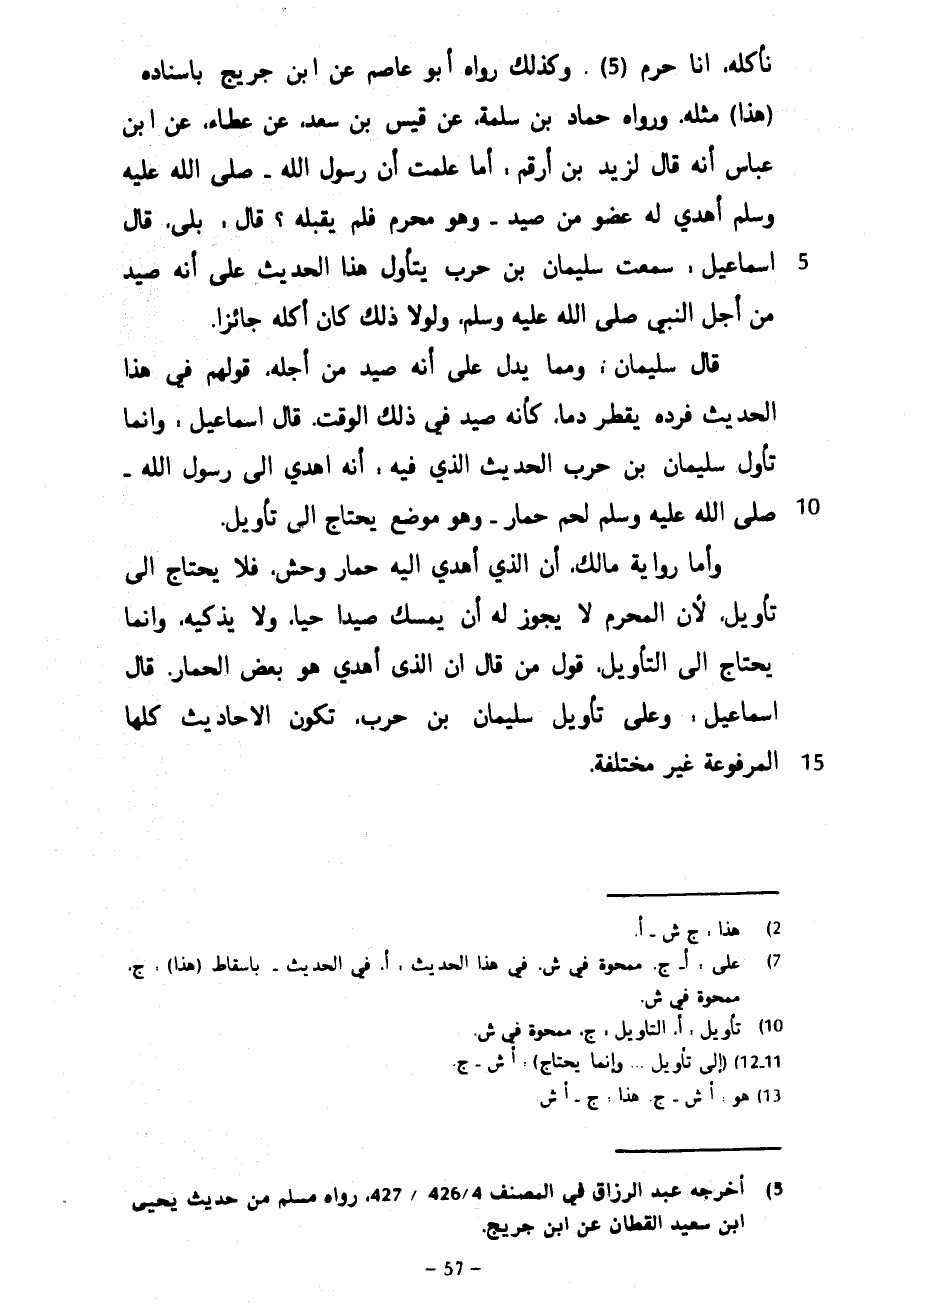 نأكله، انا حرم (5) . وكذلك رواه أبو عاصم عن ابن جريج باسناده
(هذا) مثله. ورواه حماد بن سلمة، عن قيس بن سعد، عن عطاء، عن ابن
عباس أنه قال لزيد بن أرقم : أما علمت أن رسول الله ـ صلى الله عليه
وسلم أهدي له عضو من صيد ـ وهو محرم فلم يقبله ؟ قال : بلى، قال
اسماعيل : سمعت سليمان بن حرب يتأول هذا الحديث على أنه صيد 5
من أجل النبي صلى الله عليه وسلم، ولولا ذلك كان أكله جائزا.
قال سليمان : ومما يدل على أنه صيد من أجله، قولهم في هذا
الحديث فرده يقطر دما، كأنه صيد في ذلك الوقت. قال اسماعيل : وانما
تأول سليمان بن حرب الحديث الذي فيه : أنه اهدي الى رسول الله ـ
صلى الله عليه وسلم لحم حمار ـ وهو موضع يحتاج الى تأويل. 10
وأما رواية مالك، أن الذي أهدي اليه حمار وحش، فلا يحتاج الى
تأويل، لأن المحرم لا يجوز له أن يمسك صيدا حيا، ولا يذكيه، وانما
يحتاج الى التأويل، قول من قال ان الذى أهدي هو بعض الحمار. قال
اسماعيل : وعلى تأويل سليمان بن حرب، تكون الاحاديث كلها
المرفوعة غير مختلفة. 15
2) هذا : ج ش ـ أ.
7) على : أـ ج. ممحوة في ش. في هذا الحديث : أ. في الحديث ـ باسقاط (هذا) : ج.
ممحوة في ش.
10) تأويل : أ. التاويل : ج، ممحوة في ش.
11ـ12) (إلى تأويل ... وإنما يحتاج) : أ ش ـ ج.
13) هو : أ ش ـ ج. هذا : ج ـ أ ش
5) أخرجه عبد الرزاق في المصنف 426/4 / 427، رواه مسلم من حديث يحيى
ابن سعيد القطان عن ابن جريج.
– 57 –